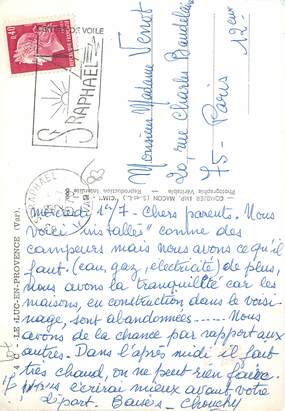 CENTRE DE VOILE
ST RAPHAEL
0,40
Monsieur Madame Vernot
20, rue Charles Baudelaire
75 - Paris
12 eme
COMBIER IMP. MACON (S.-et-L.) "CIM"
Photographie Véritable - Reproduction Interdite
LE LUC-EN-PROVENCE (Var)
ST RAPHAEL
VAR
mercredi 1er/7 - Chers parents. Nous
voici "installés" comme des
campeurs mais nous avons ce qu'il
faut. (eau, gaz, électricité) de plus,
nous avons la tranquillité car les
maisons, en construction dans le voisi-
nage, sont abandonnées ...... Nous
avons de la chance par rapport aux
autres. Dans l'après midi il fait
très chaud, on ne peut rien faire.
Je vous écrirai mieux avant votre
départ. Baisers - Chouchy